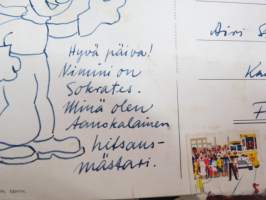 Hyvä päivä!
Nimini on
Sokrates.
Minä olen
tanskalainen
hitsaus-
mästari.
Airi